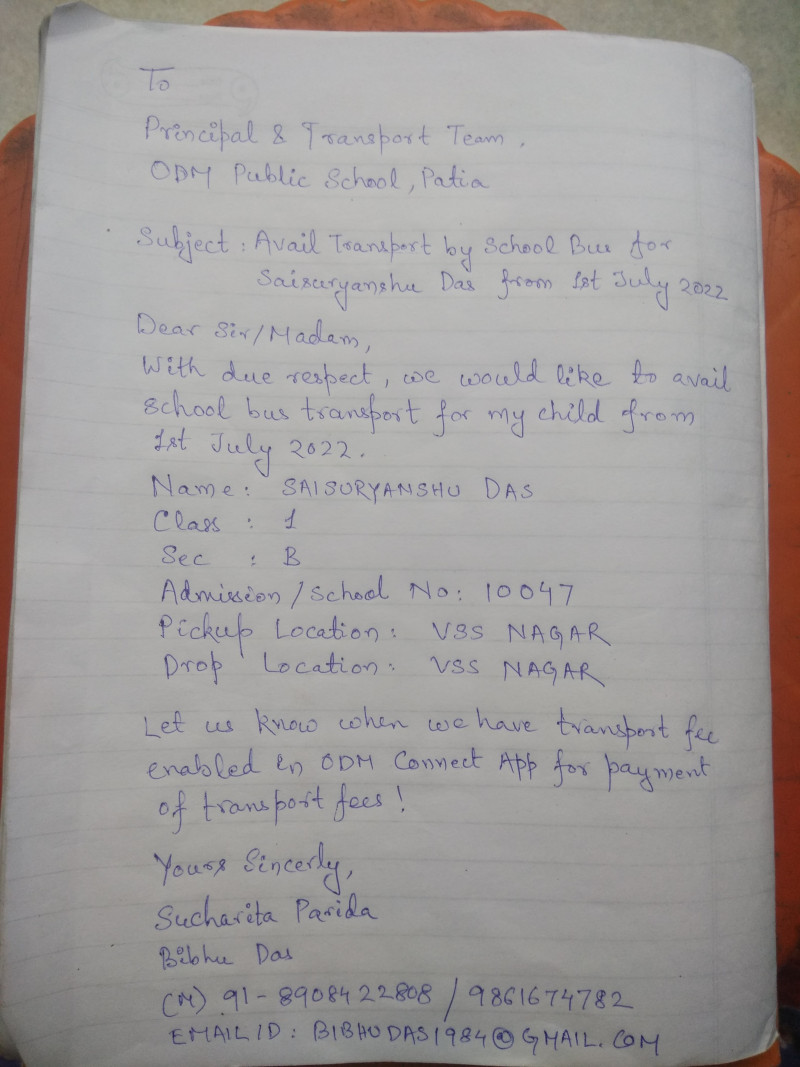 To
Principal & Transport Team,
ODM Public School, Patia
Subject: Avail Transport by School Bus for
Saisuryanshu Das from 1st July 2022
Dear Sir/Madam,
With due respect, we would like to avail
school bus transport for my child from
1st July 2022.
Name: SAISURYANSHU DAS
Class : 1
Sec : B
Admission/School No: 10047
Pickup Location: VSS NAGAR
Drop Location: VSS NAGAR
Let us know when we have transport fee
enabled in ODM Connect App for payment
of transport fees!
Yours Sincerly,
Sucharita Parida
Bibhu Das
(M) 91-8908422808 / 9861674782
EMAIL ID: BIBHUDAS1984@GMAIL.COM